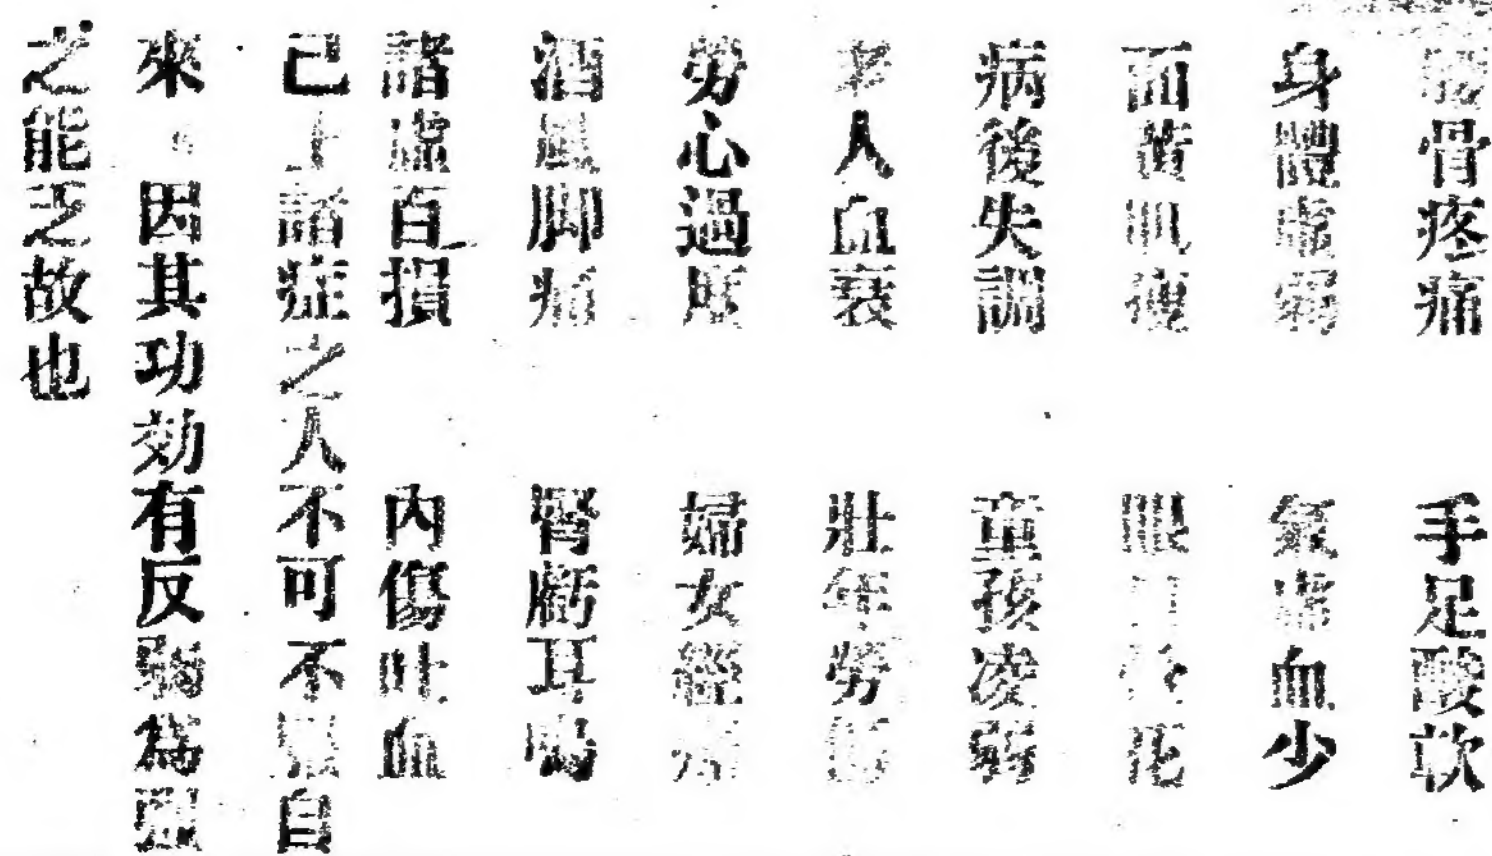 腰骨疼痛 手足酸軟
身體虛弱 氣虛血少
面黃肌瘦 眼目昏花
病後失調 童孩凌弱
老人血衰 壯年勞傷
勞心過度 婦女經
酒風脚痛 腎虧耳鳴
諸虛百損 內傷吐血
己上諸症之人不可不自
來。因其功効有反弱爲强
之能之故也